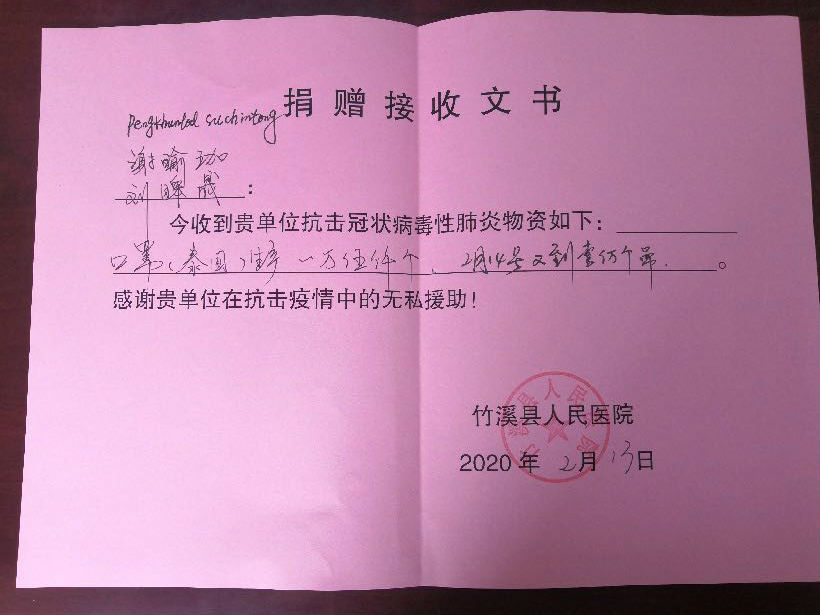 捐赠接收文书
Pengkhumlod suchintong
谢瑜珈
刘晖晟：
今收到贵单位抗击冠状病毒性肺炎物资如下：
口罩（泰国）生产 一万伍仟个、2月14号又到壹仿个吊.。
感谢贵单位在抗击疫情中的无私援助！
竹溪县人民医院
2020年2月13日